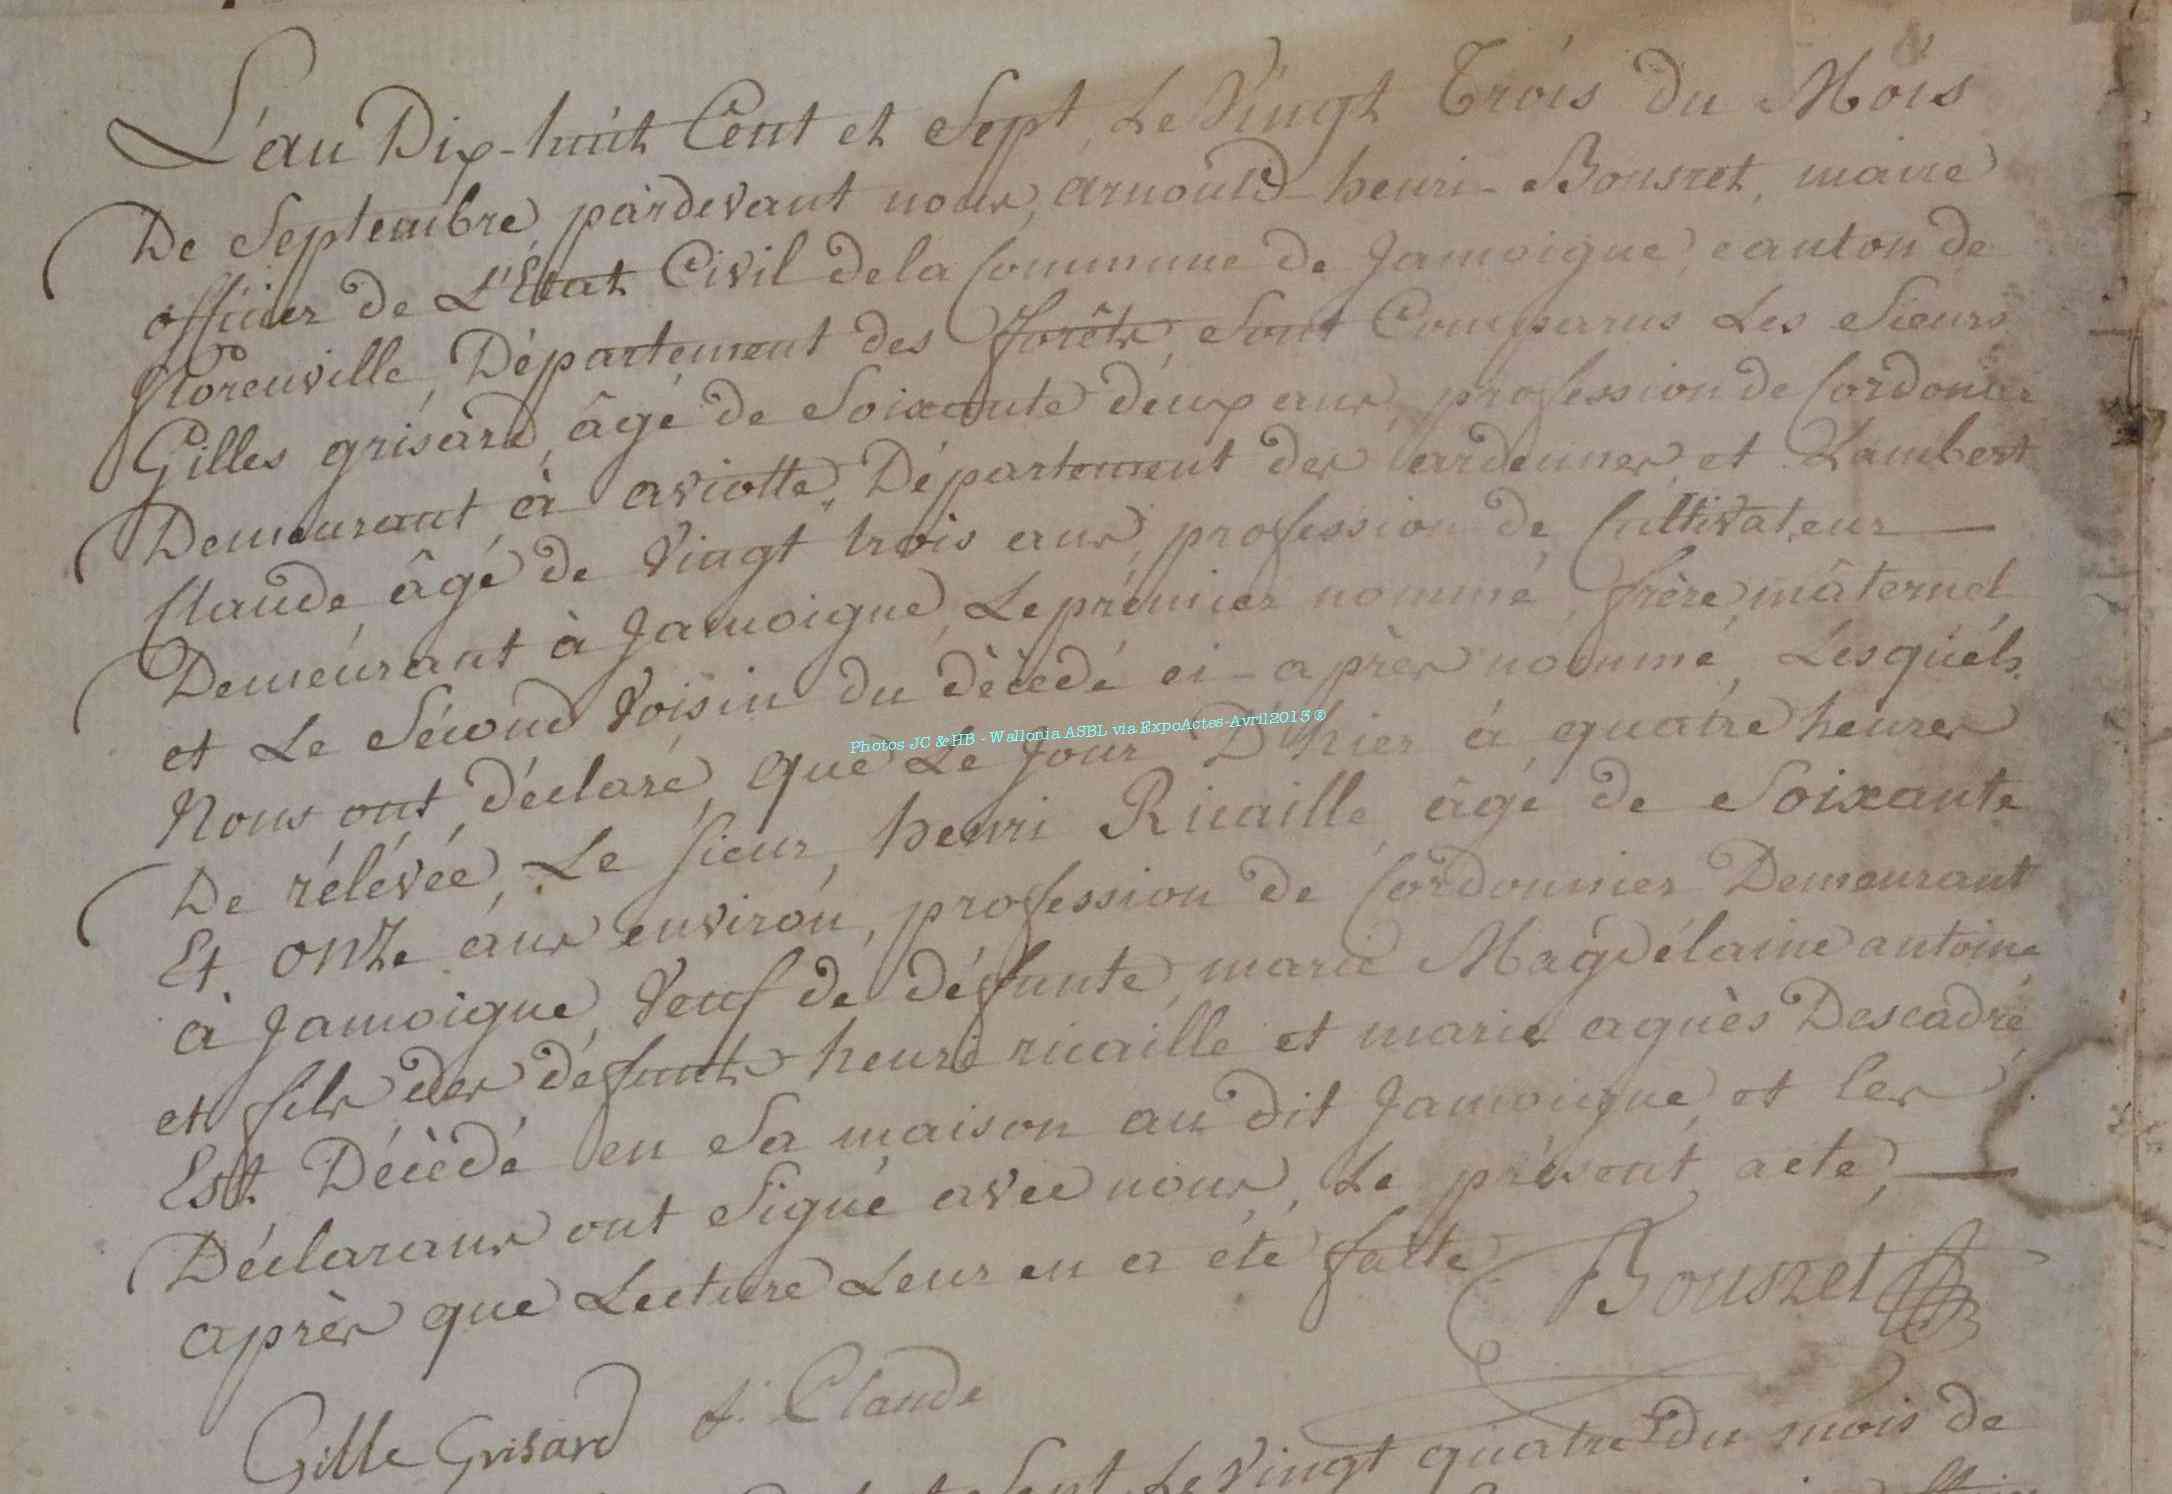 L'an Dix-huit Cent et Sept, Le Vingt Trois du Mois
De Septembre, pardevant nous, arnould-henri-Bousret, maire
officier de L'Etat Civil de la Commune de Jamoigne, canton de
florenville, Département des forêts, Sont Comparus Les Sieurs
Gilles grisard, âgé de Soixante deux ans, profession de Cordonier
Demeurant à aviotte, Département des ardennes, et Lambert
Claude, âgé de Vingt trois ans, profession de Cultivateur
Demeurant à Jamoigne, Le prémier nommé, frère mâternel
et Le Sécond Voisin du décedé ci-après nommé, Lesquels
Nous ont déclaré, que Le Jour D'hier à quatre heures
De rélévée, Le Sieur, henri Ricaille, âgé de Soixante
Et onze ans environ, profession de Cordonnier Demeurant
à Jamoigne, Veuf de défunte, marie Magdélaine antoine
et fils des défunts henri ricaille et marie agnès Descadré,
Est Décèdé en Sa maison au dit Jamoigne, et les
Déclarans ont Signé avec nous, Le présent acte,
après que Lecture Leur en a été faite
Bousret
Gille Grisard
Claude
Sept, Le Vingt quatre du mois de
Photos JC & HB - Wallonia ASBL via ExpoActes-Avril2015 ©